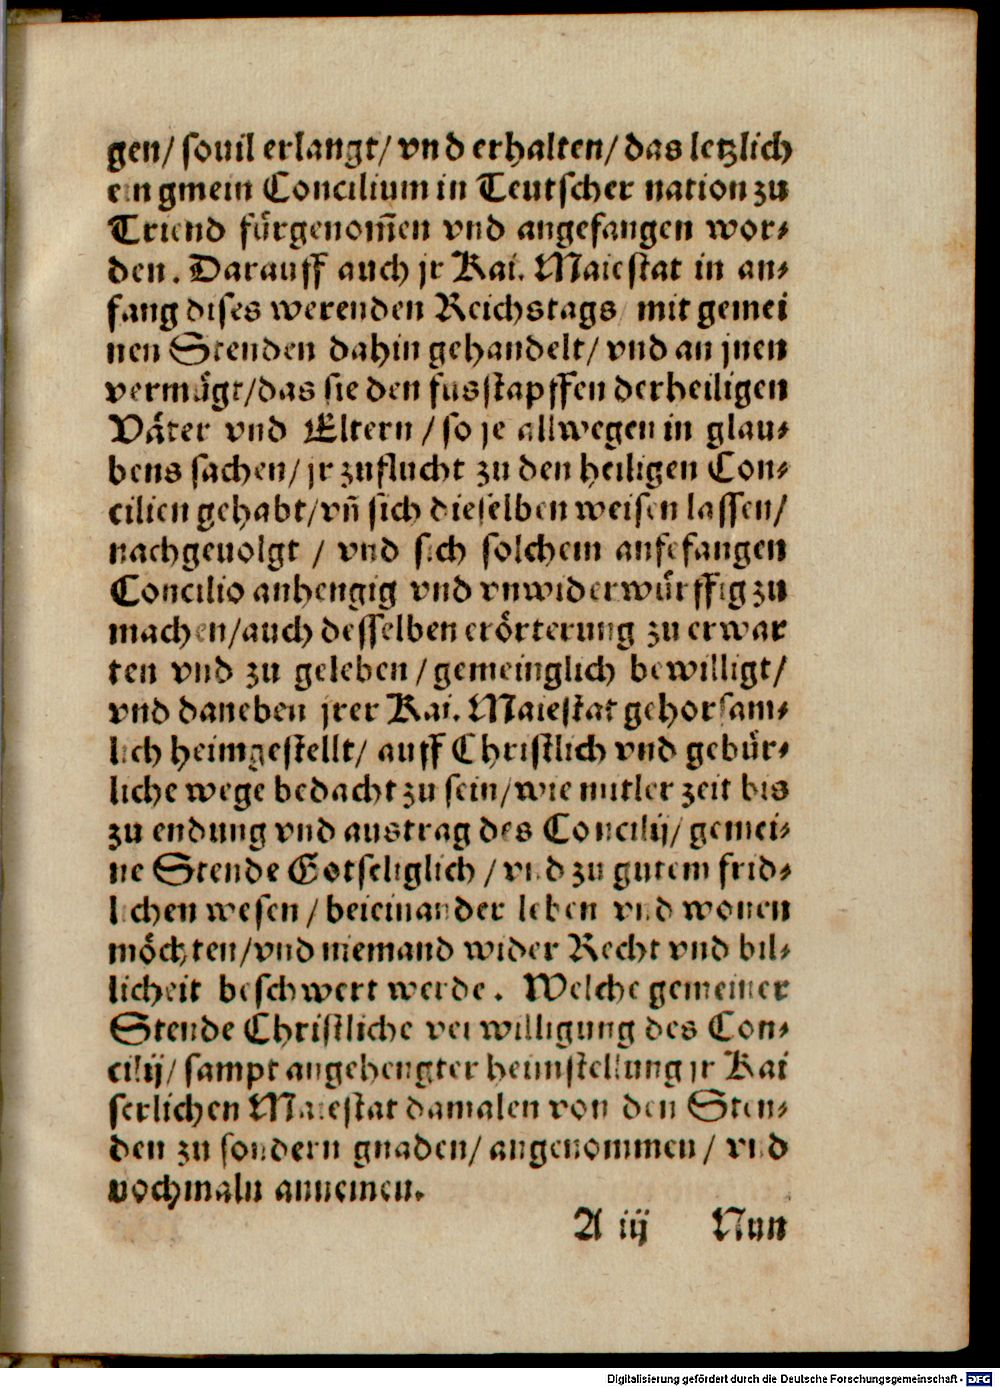 gen/ souil erlangt/ vnd erhalten/ das letzlich
ein gmein Concilium in Teutscher nation zu
Triend fürgenom̃en vnd angefangen wor⸗
den. Darauff auch jr Kai. Maiestat in an⸗
fang dises werenden Reichstags mit gemei
nen Stenden dahin gehandelt/ vnd an jnen
vermügt/das sie den fusstapffen der heiligen
Väter vnd Eltern / so je allwegen in glau⸗
bens sachen/ jr zuflucht zu den heiligen Con⸗
cilien gehabt/vn̄ sich dieselben weisen lassen/
nachgeuolgt / vnd sich solchem anfefangen
Concilio anhengig vnd vnwiderwürffig zu
machen/auch desselben erörterung zu erwar
ten vnd zu geleben / gemeinglich bewilligt/
vnd daneben jrer Kai. Maiestat gehorsam⸗
lich heimgestellt/ auff Christlich vnd gebür⸗
liche wege bedacht zu sein/wie mitler zeit bis
zu endung vnd austrag des Concilij/ gemei⸗
ne Stende Gotseliglich / vnd zu gutem frid⸗
lichen wesen / beieinander leben vnd wonen
möchten/vnd niemand wider Recht vnd bil⸗
licheit beschwert werde . Welche gemeiner
Stende Christliche verwilligung des Con⸗
cilij/ sampt angehengter heimstellung jr Kai
serlichen Maiestat damalen von den Sten⸗
den zu sondern gnaden/ angenommen / vnd
nochmaln annemen.
A iij Nun
Digitalisierung gefördert durch die Deutsche Forschungsgemeinschaft - DFG